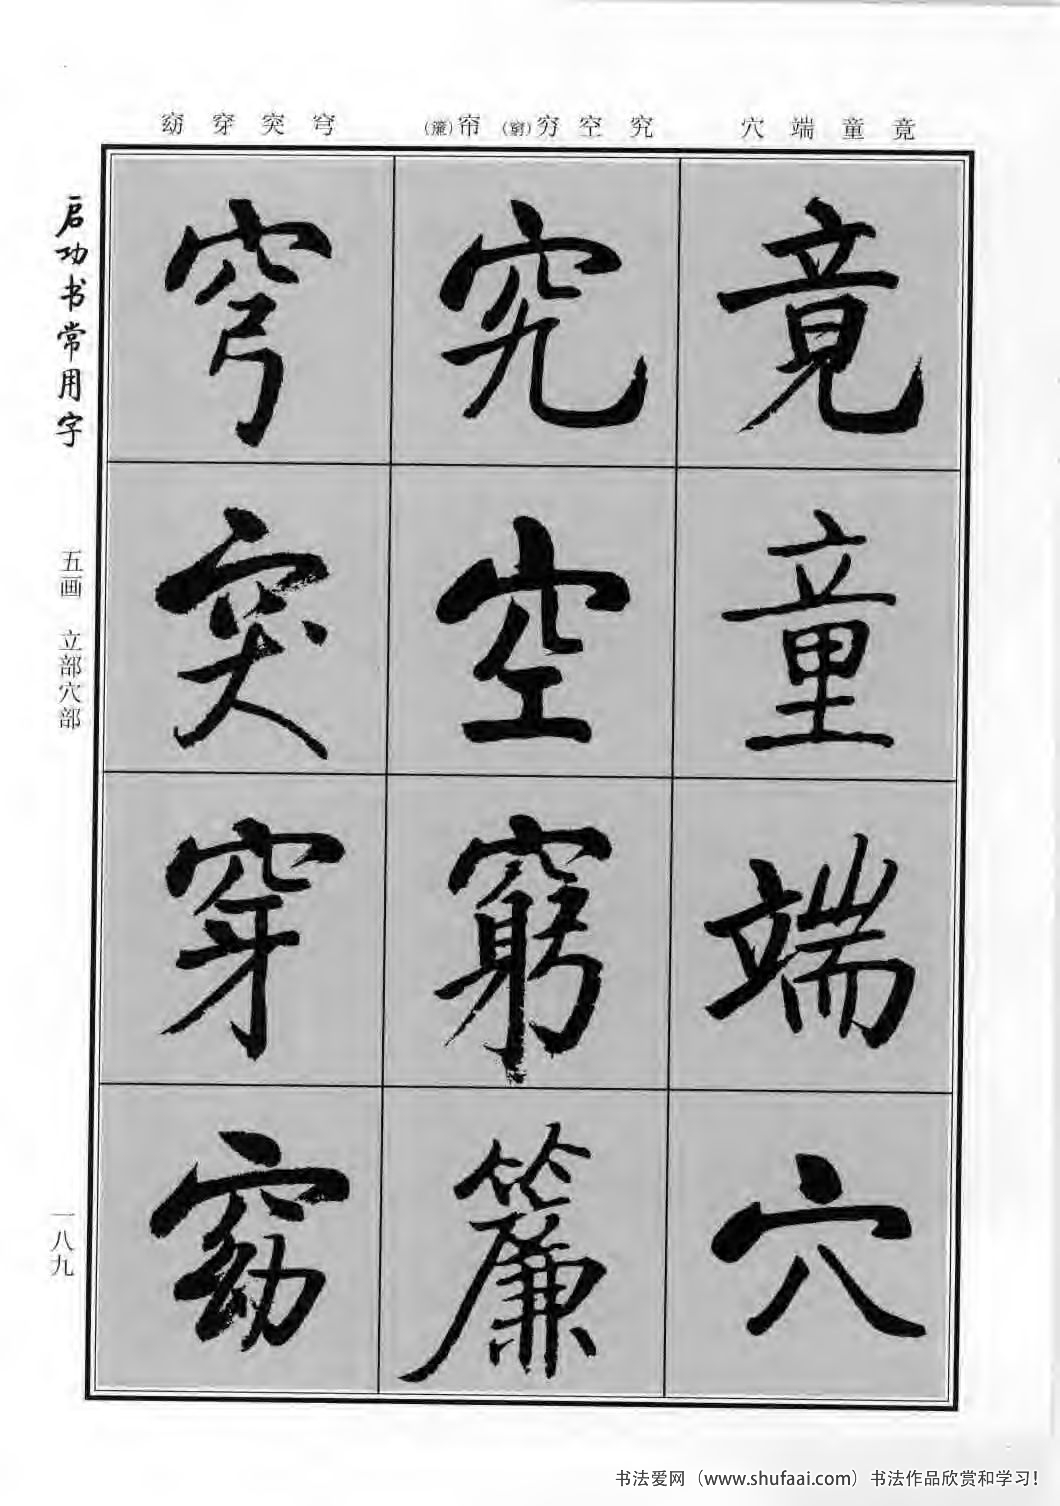 窈穿突穹 帘(簾)穷(窮)空究 穴端童竟
启功书常用字
五画 立部穴部
一八九
竟童端穴
究空窮簾
穹突穿窈
书法爱网（www.shufaai.com）书法作品欣赏和学习！